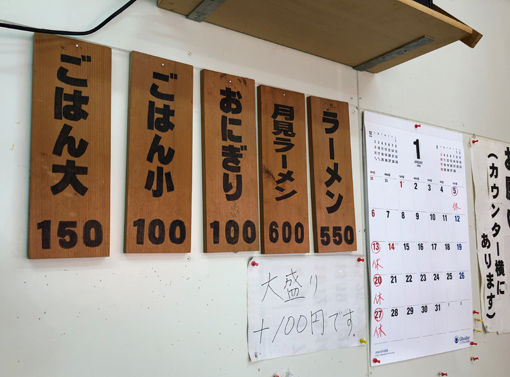 ごはん大
150
ごはん小
100
おにぎり
100
月見ラーメン
600
ラーメン
550
大盛り
+100円です
1
1 2 3 4 5
休
6 7 8 9 10 11 12
13 14 15 16 17 18 19
休
20 21 22 23 24 25 26
休
27 28 29 30 31
休
(カウンター横に
あります)